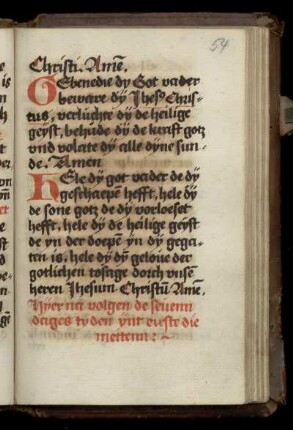 54
Christi. Amē.
GEbenedie dy Got vader
beware dÿ Jhesꝰ Chris-
tus, verluchte dÿ de heilige
geyst, behude dÿ de krafft gotz
vnd volcite dÿ alle dyne sun-
de. Amen
HEle dy got vader de dÿ
geschapeñ hefft, hele dÿ
de sone gotz de dÿ vorloeset
hefft, hele dÿ de heilige geyst
de yn der doepeñ ÿn dÿ gega-
ten is, hele dÿ dyn geloue der
gotlichen tosage dorch vnsē
heren Jhesum Christū Amē.
Hÿer na volgen de seuenn
dages tyden ÿnt eirste die
mettenn: ~